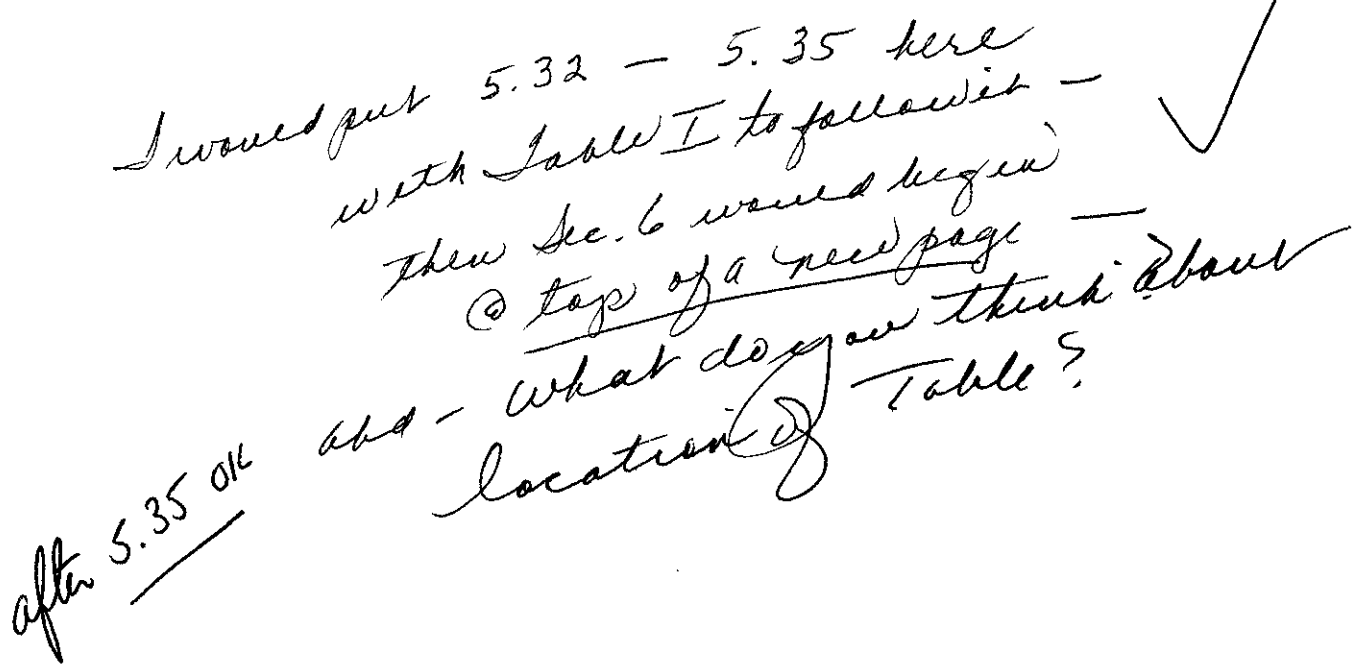 I would put 5.32 — 5.35 here
with Table I to follow it —
then Sec. 6 would begin
@ top of a new page —
and - What do you think about
location of Table?
after 5.35 OK